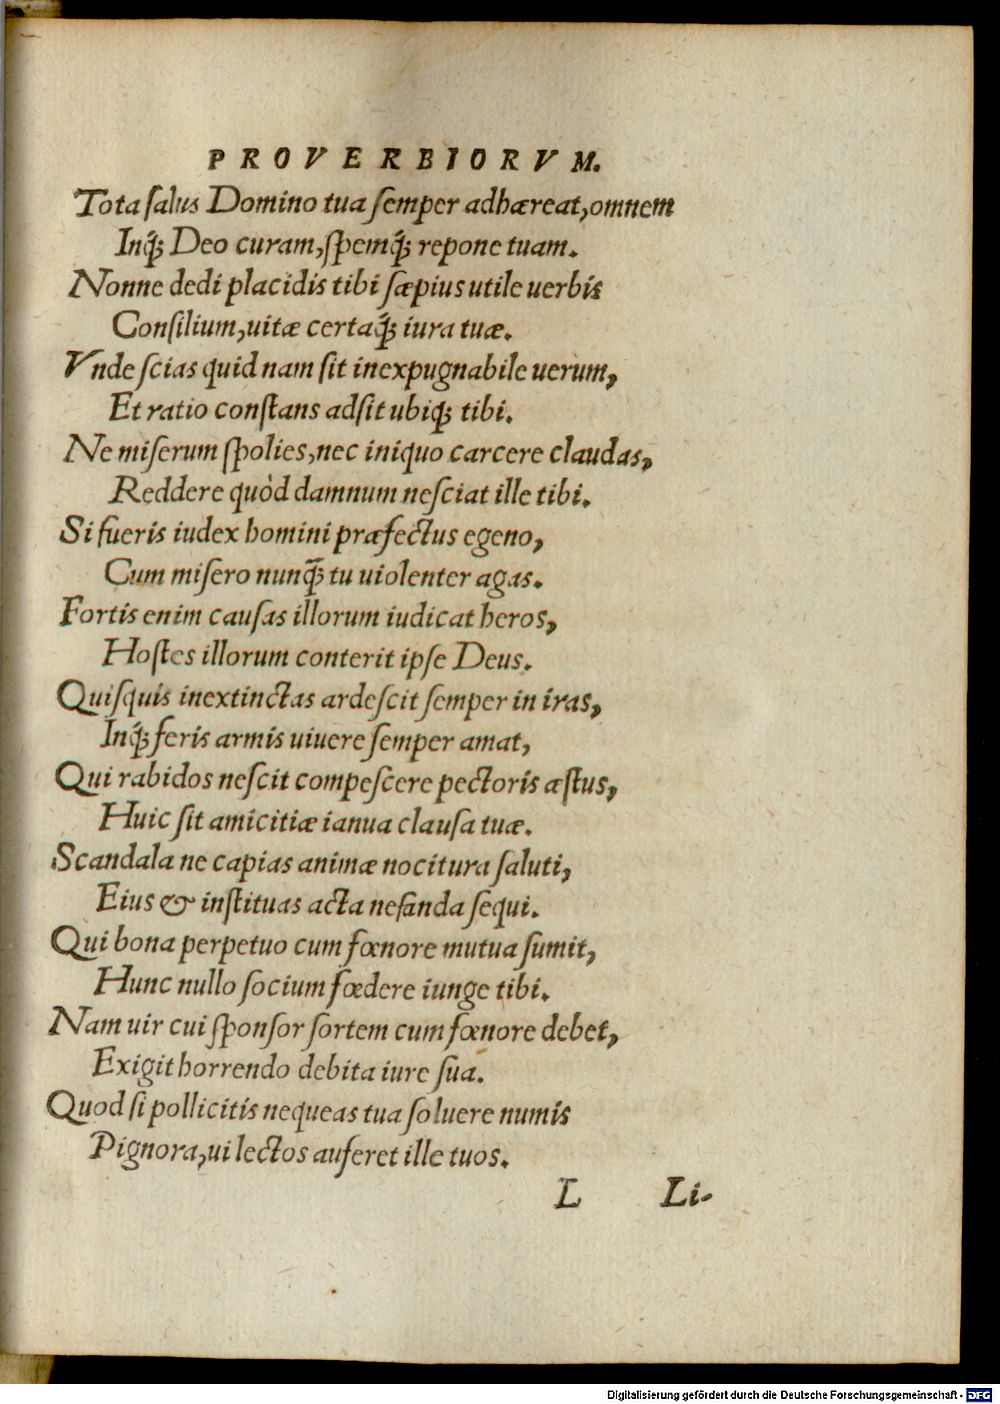 PROVERBIORVM.
Tota ſalus Domino tua ſemper adhæreat, omnem
Inq́; Deo curam, ſpemq́; repone tuam.
Nonne dedi placidis tibi ſæpius utile uerbis
Conſilium, uitæ certaq́; iura tuæ.
Vnde ſcias quid nam ſit inexpugnabile uerum,
Et ratio conſtans adſit ubiq; tibi.
Ne miſerum ſpolies, nec iniquo carcere claudas,
Reddere quòd damnum neſciat ille tibi.
Si fueris iudex homini præfectus egeno,
Cum miſero nunq̃; tu uiolenter agas.
Fortis enim cauſas illorum iudicat heros,
Hoſtes illorum conterit ipſe Deus.
Quiſquis inextinctas ardeſcit ſemper in iras,
Inq́; feris armis uiuere ſemper amat,
Qui rabidos neſcit compeſcere pectoris æſtus,
Huic ſit amicitiæ ianua clauſa tuæ.
Scandala ne capias animæ nocitura ſaluti,
Eius & inſtituas acta nefanda ſequi.
Qui bona perpetuo cum fœnore mutua ſumit,
Hunc nullo ſocium fœdere iunge tibi.
Nam uir cui ſponſor ſortem cum fœnore debet,
Exigit horrendo debita iure ſua.
Quod ſi pollicitis nequeas tua ſoluere numis
Pignora, ui lectos auferet ille tuos.
L Li-
Digitalisierung gefördert durch die Deutsche Forschungsgemeinschaft - DFG